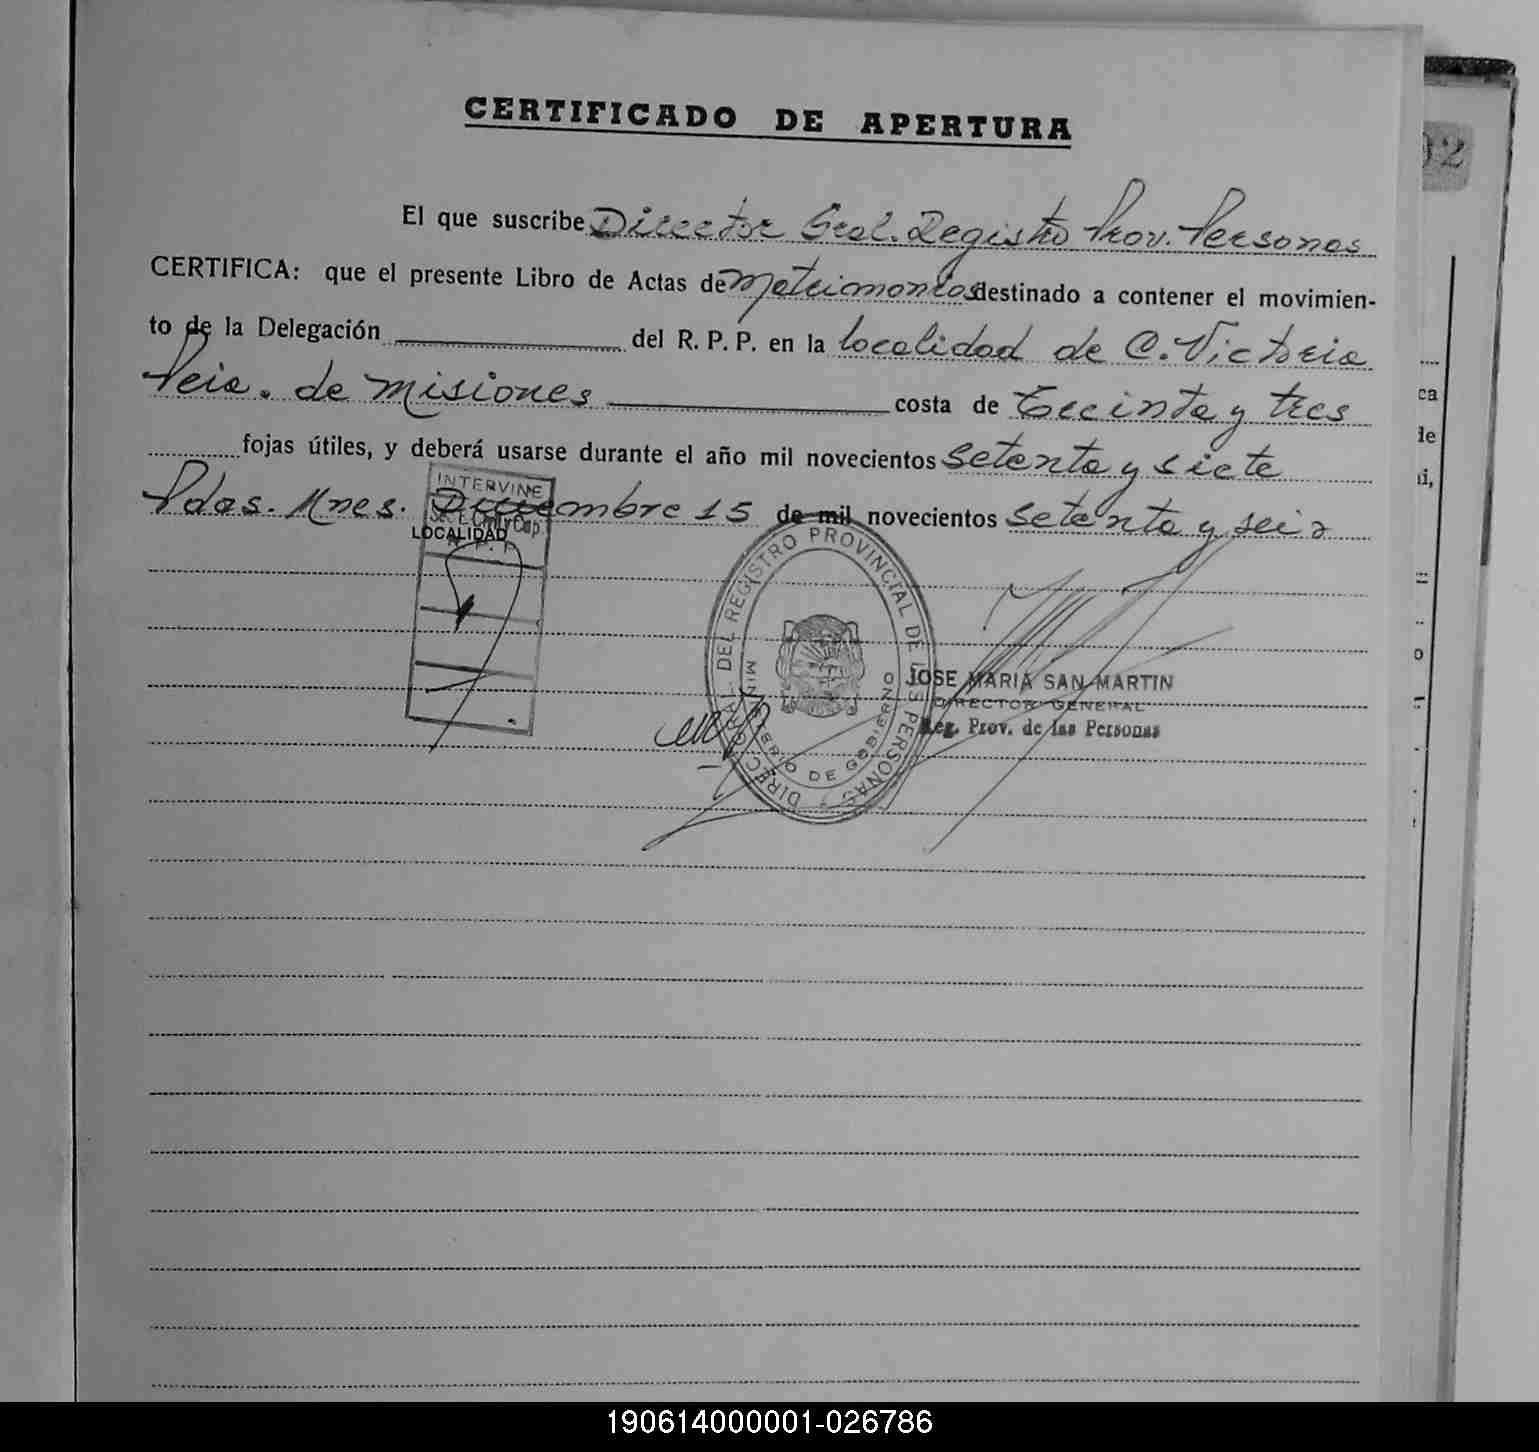 CERTIFICADO DE APERTURA
El que suscribe Director Gral. Registro Prov. Personas
CERTIFICA: que el presente Libro de Actas de Matrimonios destinado a contener el movimien-
to de la Delegación del R. P. P. en la localidad de C. Victoria
Pcia. de Misiones costa de Treinta y tres
fojas útiles, y deberá usarse durante el año mil novecientos setenta y siete
Pdas. Mnes. Diciembre 15 de mil novecientos setenta y seis
INTERVINE
LOCALIDAD
DIRECCION GRAL. DEL REGISTRO PROVINCIAL DE LAS PERSONAS
MINISTERIO DE GOBIERNO
JOSE MARIA SAN MARTIN
DIRECTOR GENERAL
Reg. Prov. de las Personas
02
ca
de
ni,
o
190614000001-026786